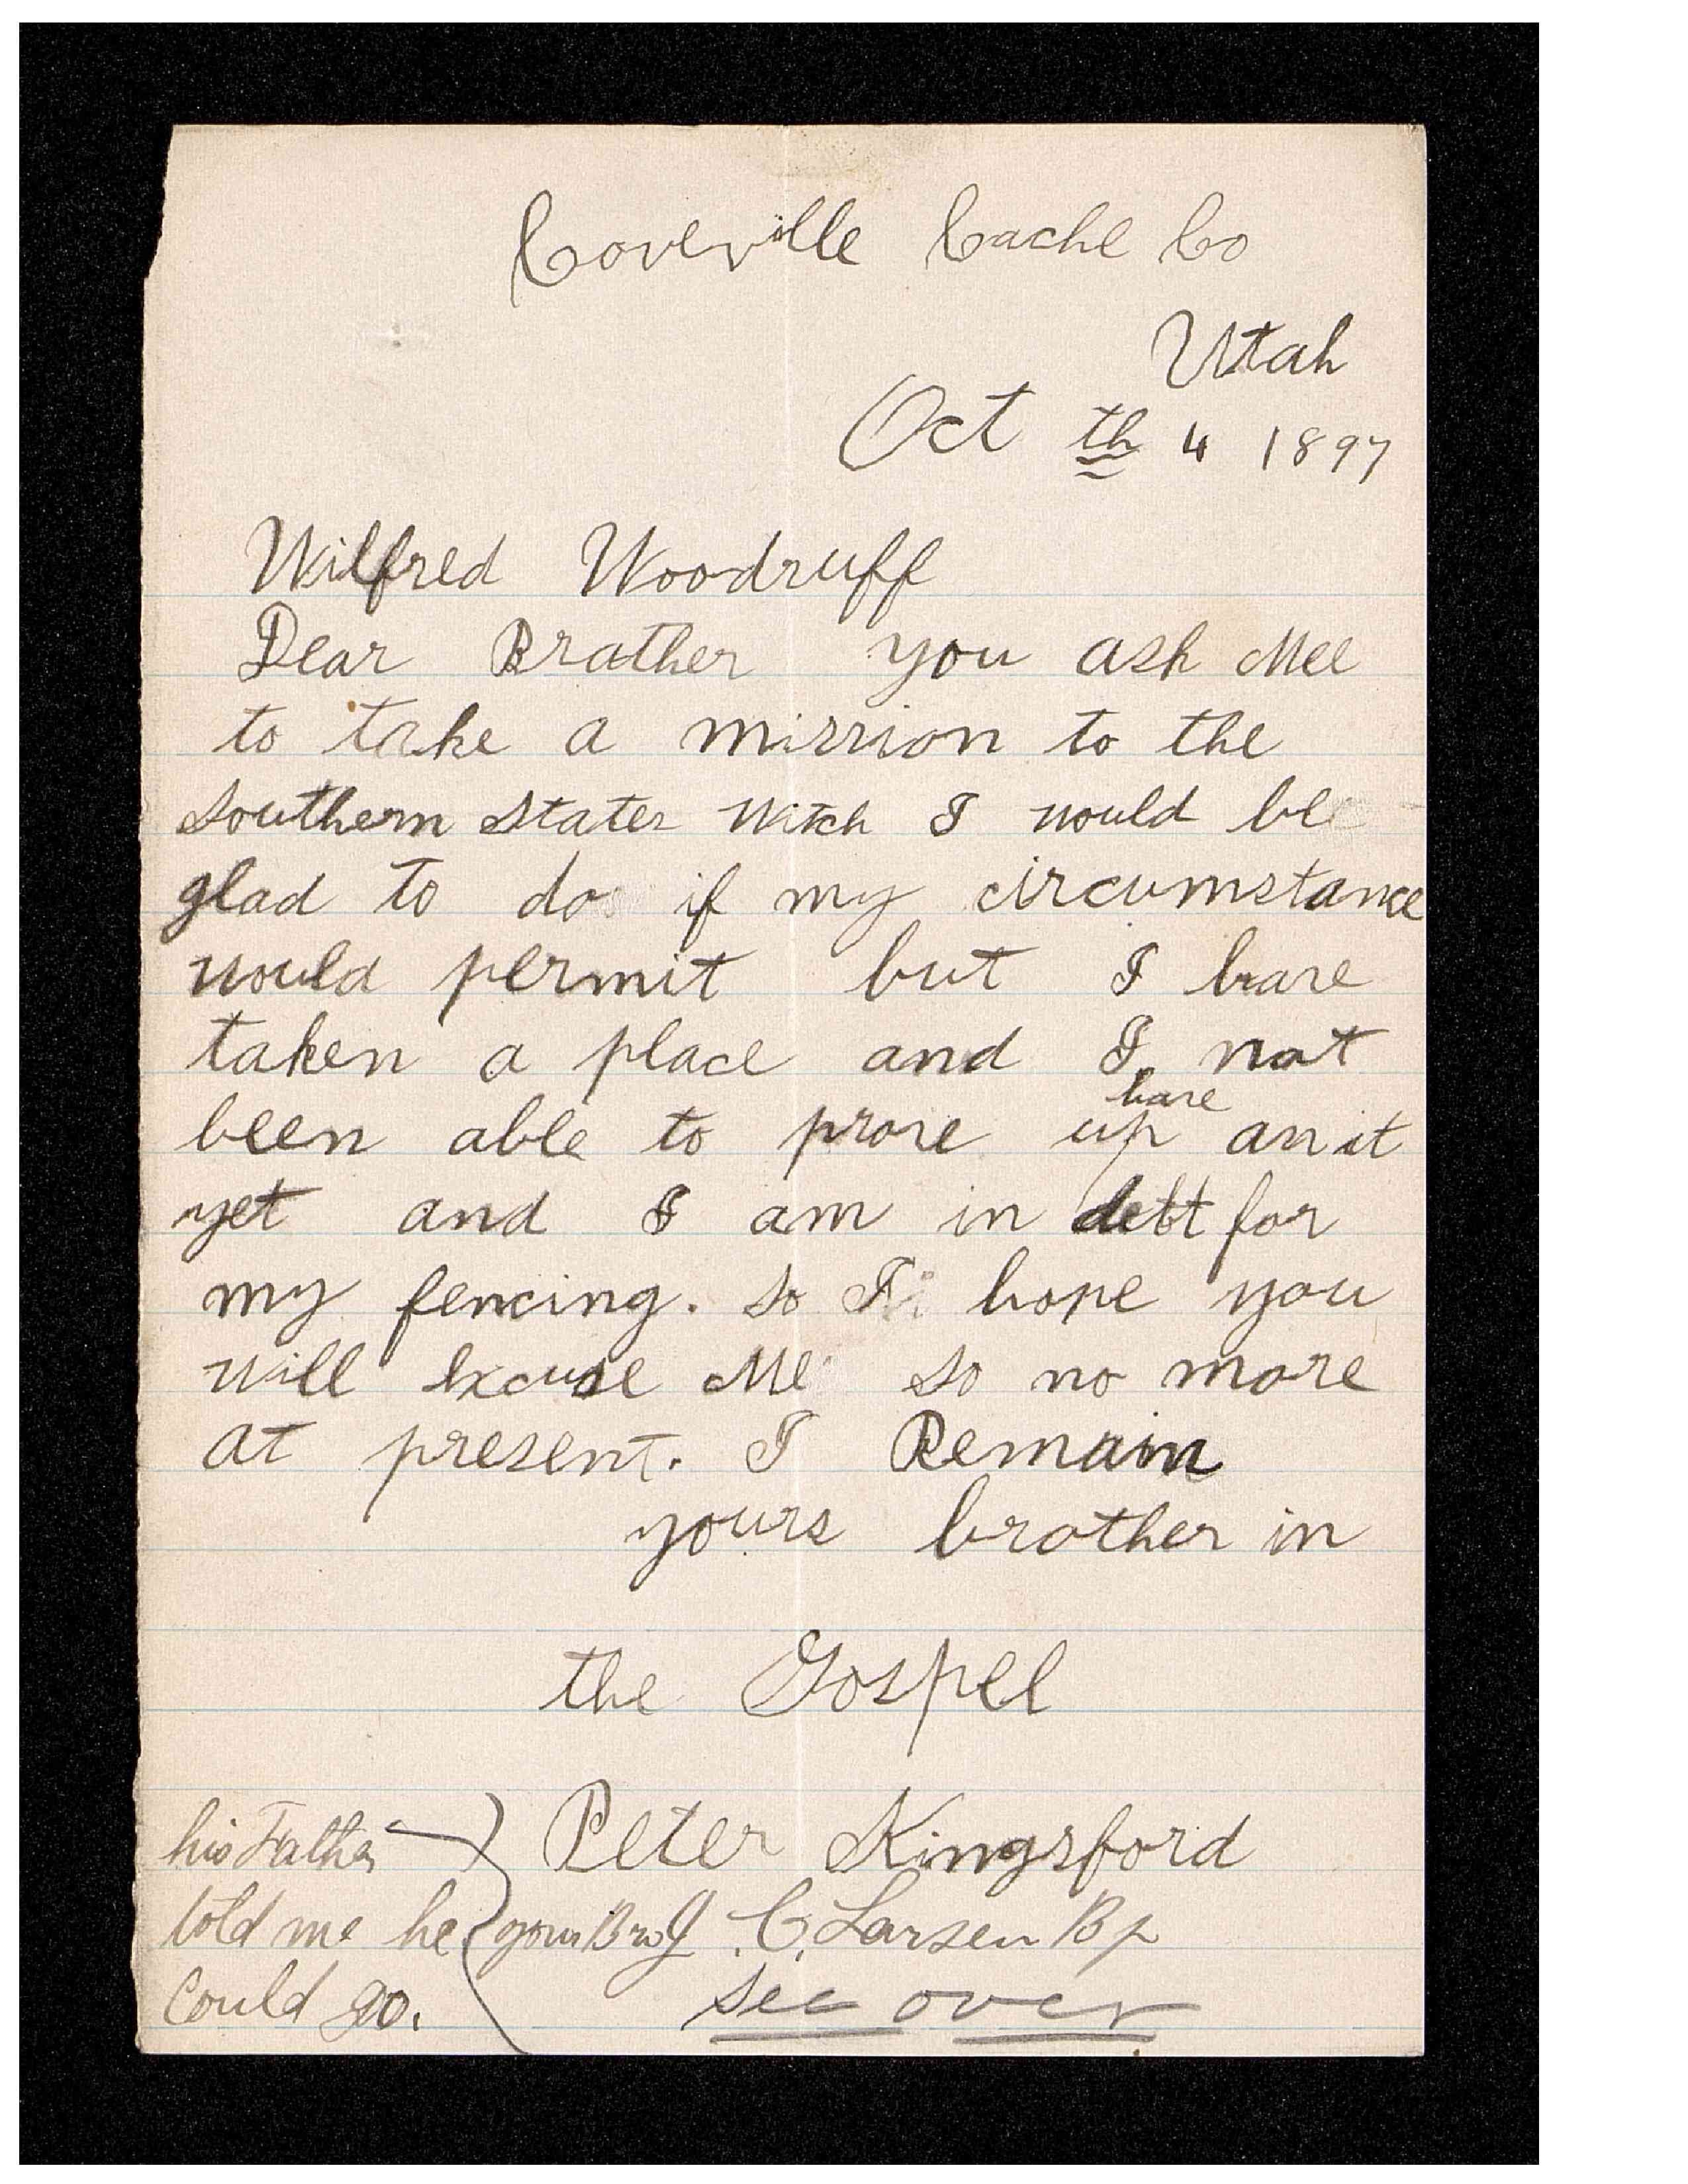 Coveville Cache Co
Utah
Oct th 4 1897
Wilfred Woodruff
Dear Brother you ask Mee
to take a mission to the
Southern States witch I would be
glad to do if my circumstance
would permit but I have
taken a place and I not
have
been able to prove up on it
yet and I am in dett for
my fencing. So I hope you
will excuse Me so no more
at present. I Remain
yours brother in
the Gospel
Peter Kingsford
his Father
told me he
Could go.
your Bro J. C. Larsen Bp
see over